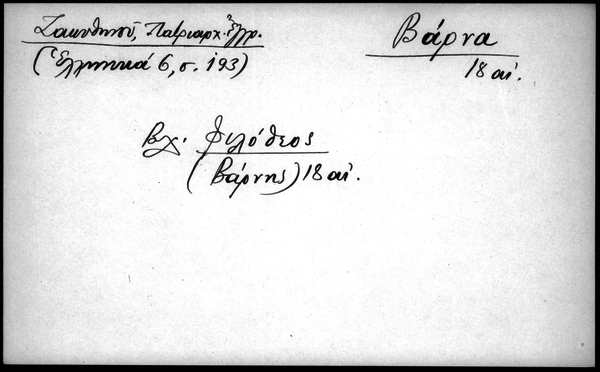 Ζακυθηνοῦ, Πατριαρχ. ἔγγρ.
(Ἑλληνικά 6, σ. 193)
Βάρνα
18 αἰ.
Βχ. Φιλόθεος
(Βάρνης) 18 αἰ.